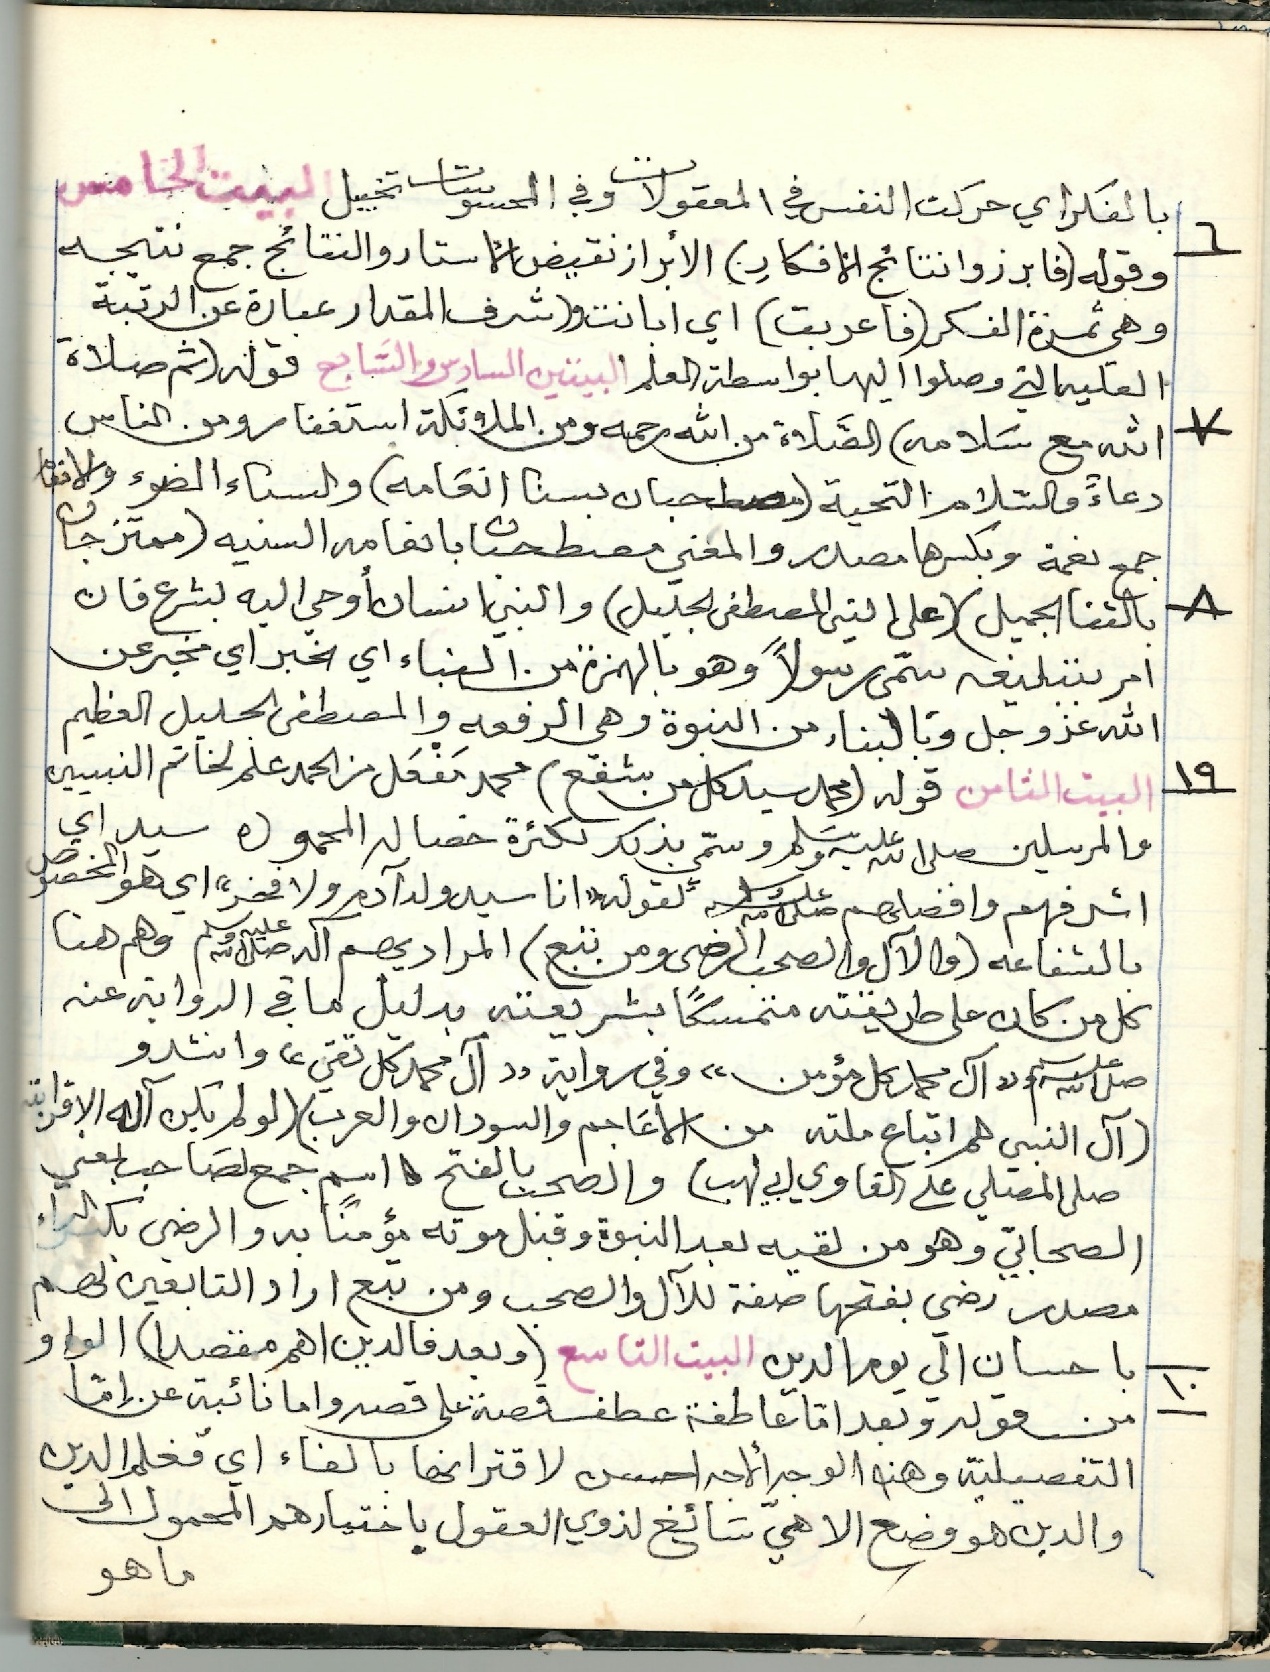 بالفكر اي حركت النفس في المعقولات وفي المحسوسات تخييل البيت الخامس
٦
وقوله (فابرزوا نتائج الافكار) الأبراز نقيض الأستار والنتائج جمع نتيجه
وهي ثمرة الفكر (فاعربت) اي ابانت و(شرف المقدار عبارة عن الرتبة
العليه التي وصلوا اليها بواسطة العلم البيتين السادس والسَّابع قوله (ثم صلاة
٧
الله مع سَلامه) الصَّلاة من الله رحمه ومن الملائكة استغفار ومن الناس
دعاءً والسَّلام التحية (مصطحبان بسنا انعَامه) والسناء الضوء والانعام
جمع نعمة وبكسرها مصدر والمعنى مصطحبان بانعامه السنيه (ممتزجان
٨
بالثنا الجميل) (على النبي المصطفى الجليل) والنبي انسان أوحي اليه بشرع فان
امر بتبليغه سمّي رسولاً وهو بالهمزة من النباء اي الخبر اي مخبر عن
الله عز وجل وبالبناء من النبوة وهي الرفعه والمصطفى الجليل العظيم
١٩
البيت الثامن قوله (محمد سيد كل من يشفع) محمد مَفْعَل من الحمد علم لخاتم النبيين
والمرسلين صلى الله عليه وسَلم وسمّي بذلك لكثرة خصاله المحموده سيد اي
اشرفهم وافضلهم صلى الله عليه وسلم لقوله «انا سيد ولد آدم ولا فخر» اي هو المخصوص
بالشفاعه (والآل والصحب الرضى ومن تبع) المراد بهم آله صلى الله عليه وسلم وهم هنا
كل من كان على طريقته متمسكًا بشريعته بدليل ما في الرواية عنه
صلى الله عليه وسلم «آل محمد كل مؤمن» وفي رواية «آل محمد كل تقي» وانشدو
(آل النبي هم اتباع ملته من الأعَاجم والسودان والعرب) (لو لم يكن آله الا قرابته
صلى المصلي على الغاوي ابي لهب) والصحب بالفتح اسم جمع لصَاحب بمعنى
الصحابيّ وهو من لقيه بعد النبوة وقبل موته مؤمنًا به والرضى بكسر الراء
مصدر رضي بفتحها صفة للآل والصحب ومن تبع اراد التابعين لهم
باحسان الى يوم الدين البيت التاسع (وبعد فالدين اهم مقصدا) الواو
١٠
من قوله وبعد امّا عَاطفة عطفت قصة على قصه واما نائبة عن امّا
التفصيلية وهذا الوجه احسن لاقترانها بالفاء اي فعلم الدين
والدين هو وضع الاهيّ سَائغ لذوي العقول باختيارهم المحمول الى
ما هو